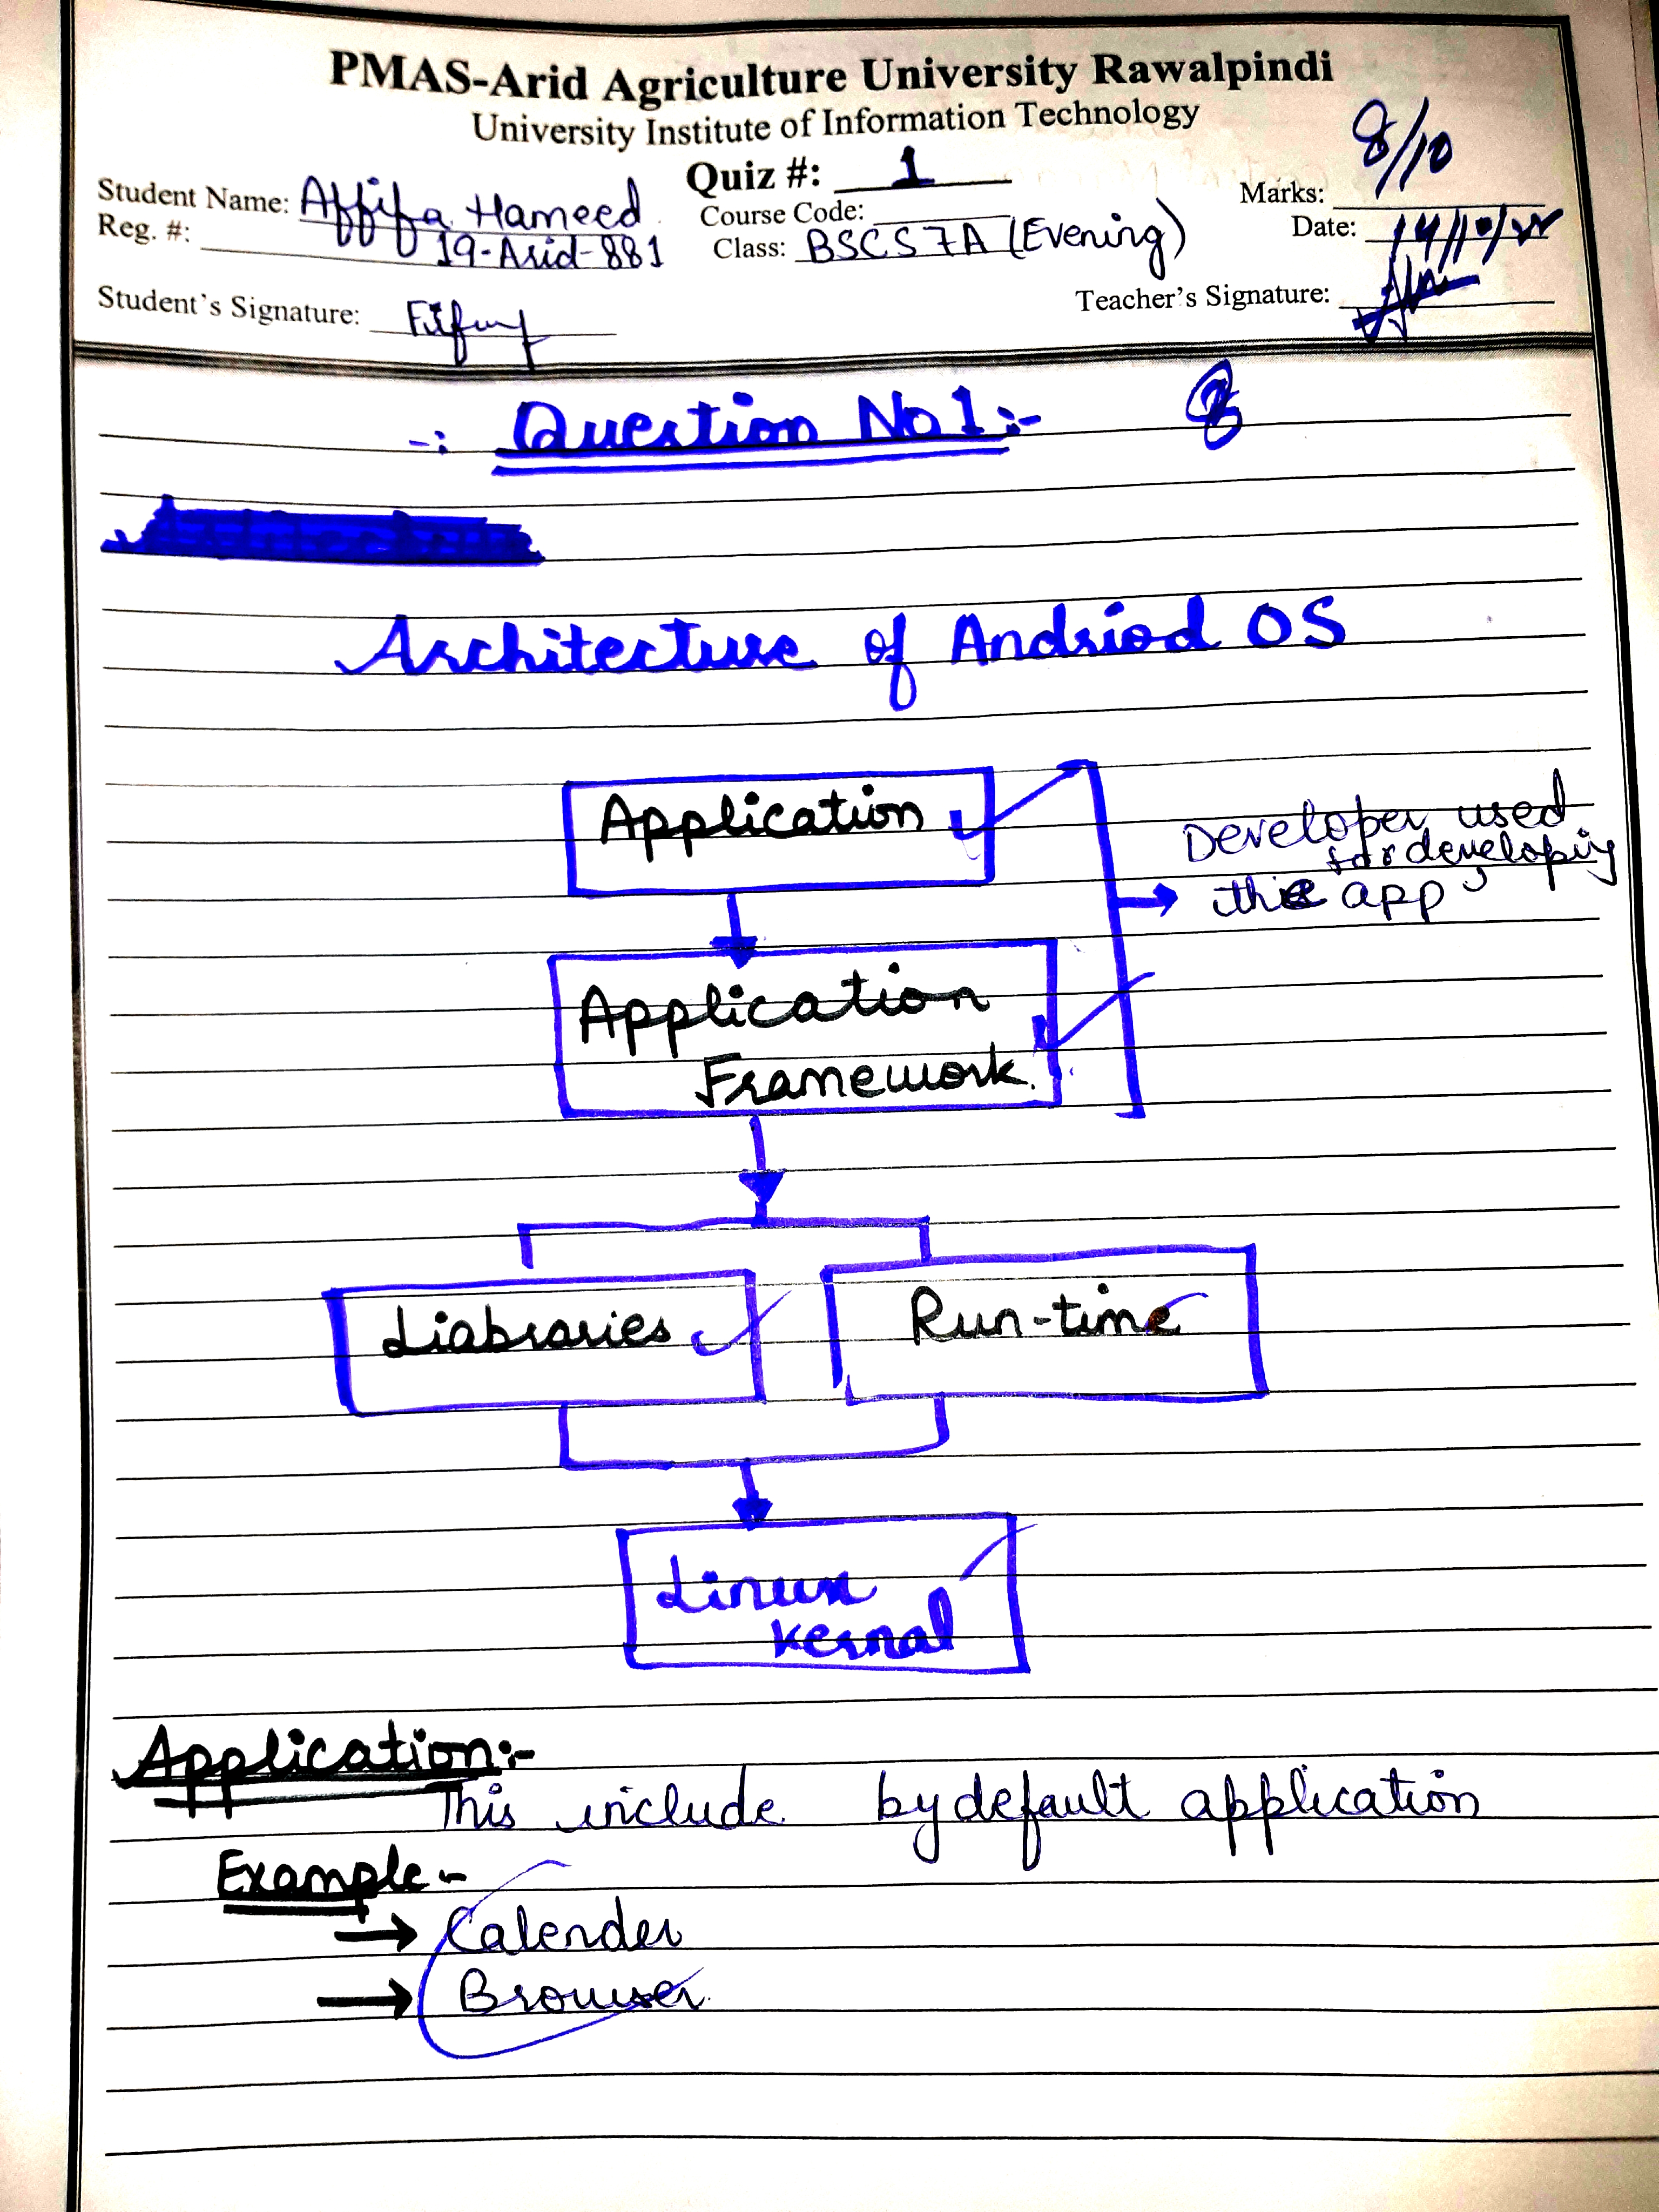 PMAS-Arid Agriculture University Rawalpindi
University Institute of Information Technology
8/10
Quiz #: 1
Marks:
Student Name: Affifa Hameed
Course Code:
Date: 14/10/22
Reg. #: 19-Arid-881
Class: BSCS 7A (Evening)
Student's Signature:
Teacher's Signature:
-: Question No 1 :-
8
Architecture of Andriod OS
Application
Developer used
for developing
the app
Application
Framework.
Liabraries
Run-time
Linux
kernal
Application:-
This include bydefault application
Example:-
→ Calender
→ Browser.